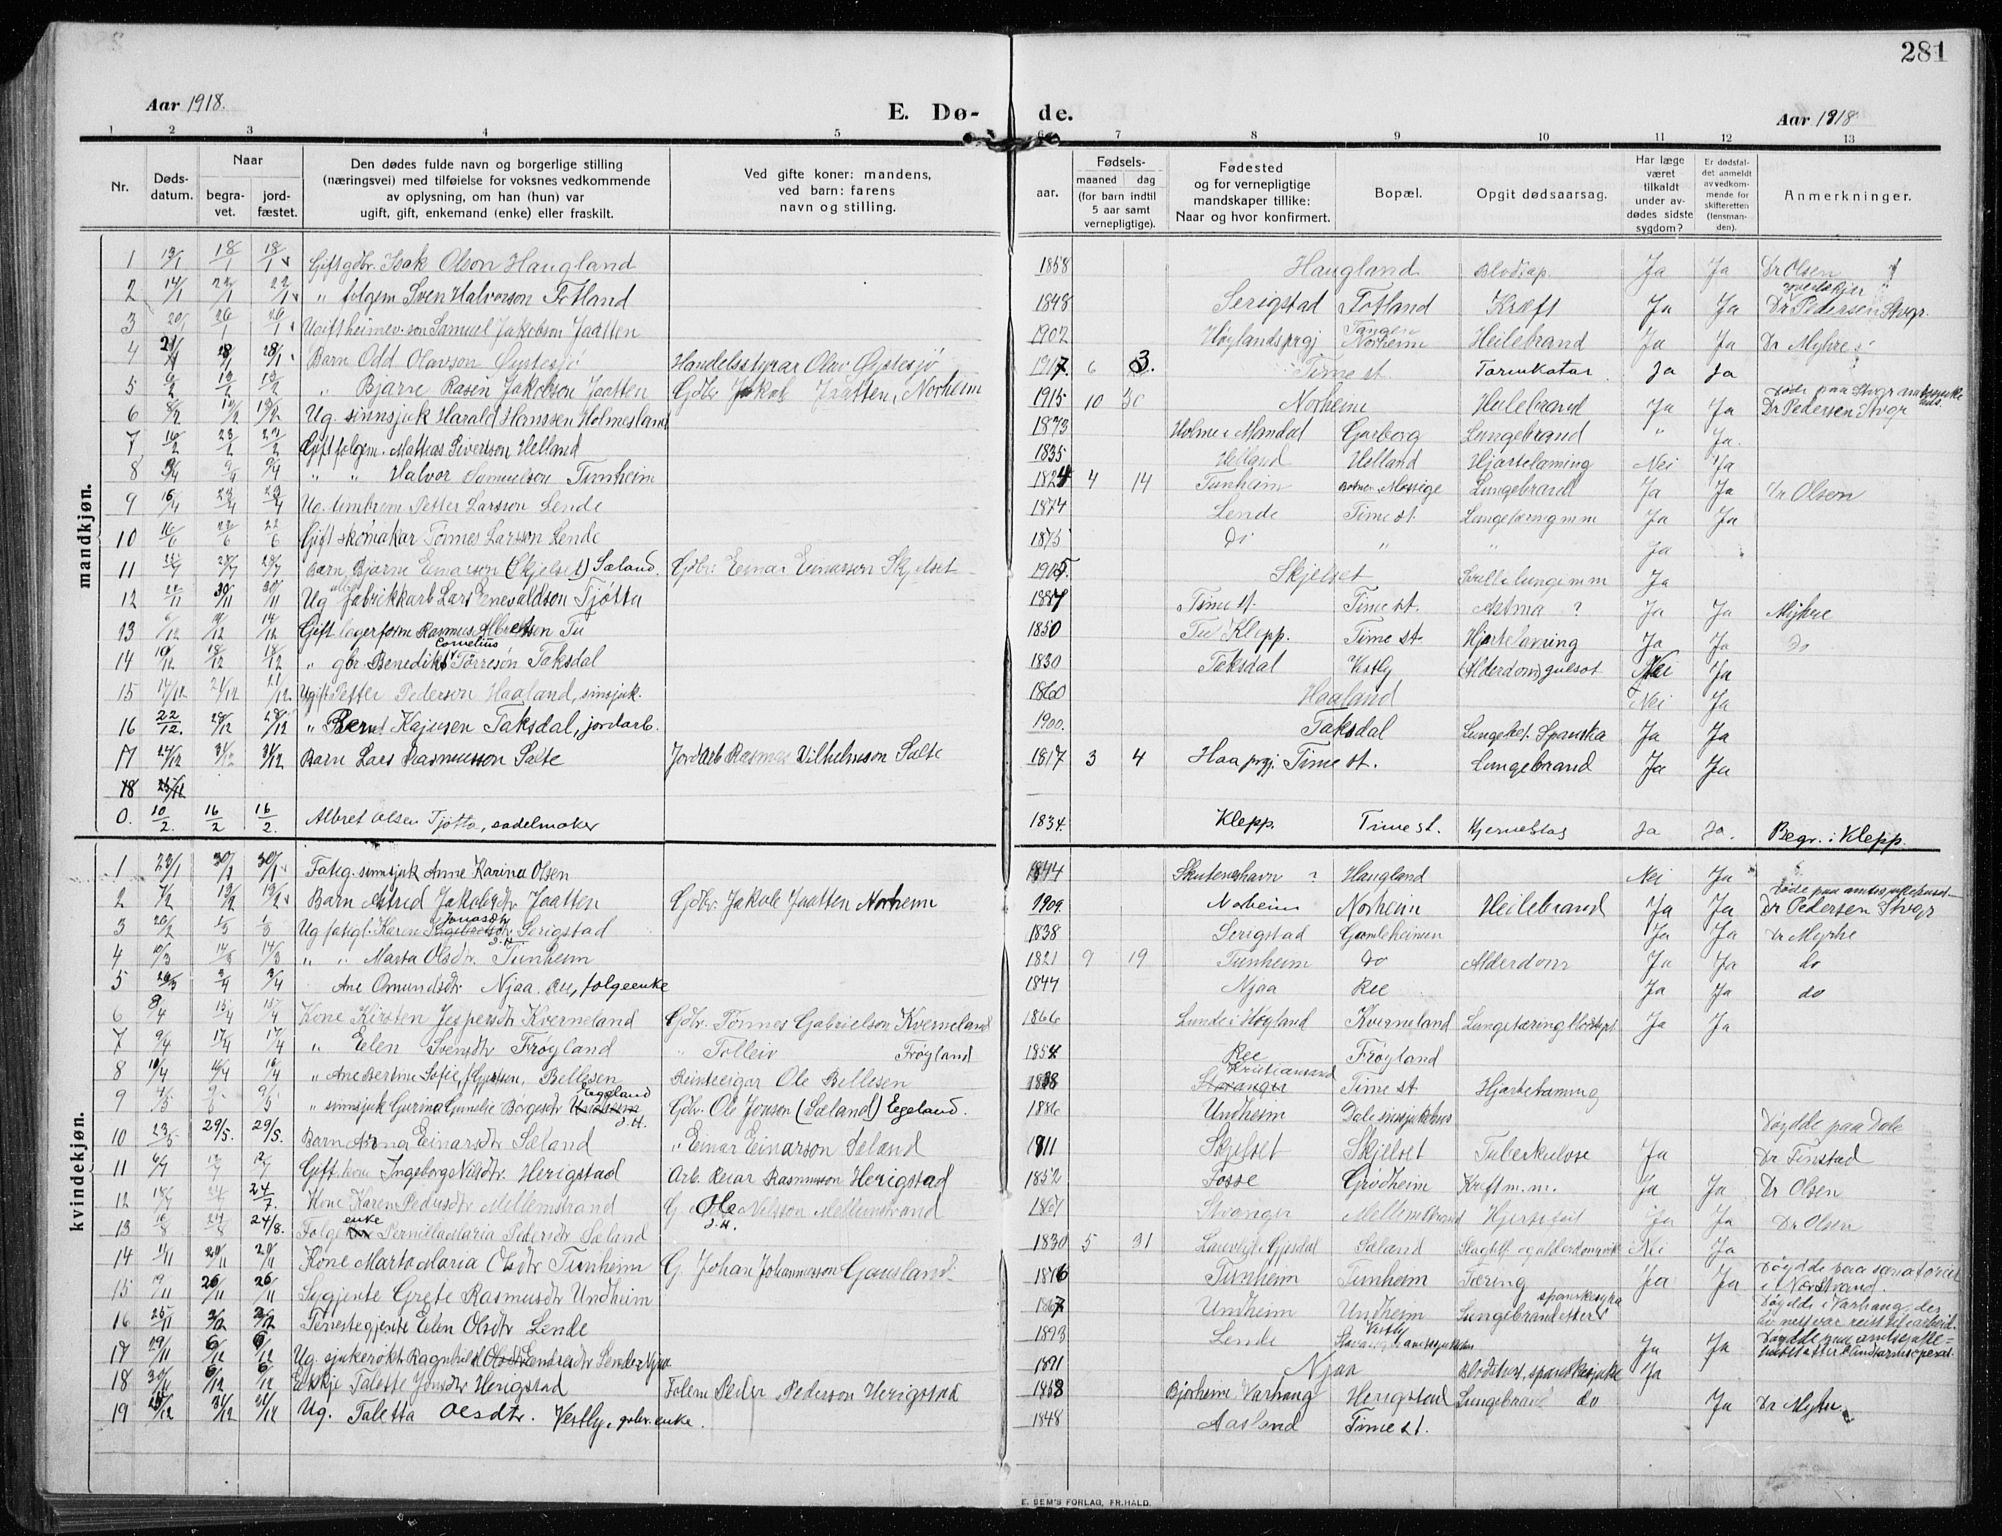 281
Aar 1918.
E. Dø- de.
Aar 1918
1 2 3 4 5 6 7 8 9 10 11 12 13
Nr. Døds-datum. Naar begra-vet. jord-fæstet. Den dødes fulde navn og borgerlige stilling (næringsvei) med tilføielse for voksnes vedkommende av oplysning, om han (hun) var ugift, gift, enkemand (enke) eller fraskilt. Ved gifte koner: mandens, ved barn: farens navn og stilling. aar. Fødsels- maaned dag (for barn indtil 5 aar samt vernepligtige). Fødested og for vernepligtige mandskaper tillike: Naar og hvor konfirmert. Bopæl. Opgit dødsaarsag. Har læge været tilkaldt under av-dødes sidste sygdom? Er dødsfal-det anmeldt av vedkom-mende for skifteretten (lensman-den). Anmerkninger.
mandkjøn.
1 13/1 18/1 18/1 Gift gdbr. Isak Olson Haugland 1858 Haugland Blodtap Ja Ja Dr Olsen
2 14/1 22/1 22/1 " folgem Sven Halvorson Fotland 1848 Serigstad Fotland Kræft Ja Ja Dr Pedersen Stvgr.
3 20/1 26/1 26/1 Ugift heimev. son Samuel Jakobson Jaatten 1902 Høylandsprgj Norheim Heilebrand Ja Ja Dr Myhre
4 28/1 28/1 Barn Odd Olavson Øystesjø Handelsstyrar Olav Øystesjø 1917 6 3. Time st Tarmkatar Ja Ja
5 13/2 13/2 " Bjarne Rasen Jakobson Jaatten Gdbr Jakob Jaatten, Norheim 1915 10 30 Norheim Heilebrand Ja Ja Dr Pedersen Stvgr
6 8/2 19/2 19/2 Ug. sinnsjuk Harald Hanssen Holmesland 1873 Holme i Mandal Garborg Lungebrand " Ja.
7 16/2 23/2 23/2 Gift folgem. Mattias Sivertson Helland 1835 Helland Helland Hjartelaming Nei Ja
8 3/4 9/4 9/4 " " Halvor Samuelson Tunheim 1824 4 14 Tunheim Mossige Lungebrand Ja Ja Dr Olsen
9 16/4 23/4 23/4 Ug. Petter Larsson Lende 1874 Lende Time st. Ja Ja
10 16/6 22/6 22/6 Gift skomakar Tønnes Larsson Lende 1875 Do " " Ja
11 29/7 29/7 Barn Bjarne Einarson (Skjelset) Sæland. Gdbr. Einar Einarson Skjelset 1905. Skjelset Ja
12 30/11 30/11 Ug fabrikkarb Lars Enevaldson Tjøtta 1887 Time st. Time st. Astma ? Ja Ja Myhre
13 6/12 14/12 14/12 Gift lagerform Rasmus Albretson Tu 1850 Tu Klepp. Time st. Hjartelaming Ja Ja Do
14 10/12 18/12 18/12 " gbr Benedikt Cornelius Tørreson Taksdal 1830 Taksdal Vestly Alderdom, gulsot Nei Ja
15 14/12 21/12 21/12 Ugift Petter Pederson Haaland, sinsjuk. 1860 Haaland Nei Ja
16 22/12. 28/12 28/12 " Bernt Kajusen Taksdal, jordarb. 1900. Taksdal Spanska Ja Ja
17 24/12 31/12 31/12 Barn Lars Rasmusson Salte Jordarb Rasmus Vilhelmson Salte 1817 3 4 Haa prgj. Time st. Lungebrand Ja Ja
18 25/12
0. 10/2. 16/2 16/2. Albret Olsen Tjøtta, sadelmaker 1834. Klepp. Time st. Hjerneslag Ja Ja. Begr. i Klepp.
kvindekjøn.
1 23/1 30/1 30/1 Fatig. sinnsjuk Anne Karina Olsen 1844 Skuteneshavn ? Haugland Nei Ja
2 7/2 19/2 19/2 Barn Astrid Jakobsdtr Jaatten Gdbr Jakob Jaatten Norheim 1909. Norheim Norheim Heilebrand Ja Ja Døde paa amtssjukehuset Dr Pedersen Stvgr
3 20/2 1/3 1/3 Ug fatigl. Karen Jonasdtr Serigstad 1838 Serigstad Gamleheimen Ja Ja Dr Myhre
4 10/3 14/3 14/3 " " Marta Olsdtr. Tunheim 1821 9 19 Tunheim Do Alderdom Ja Ja do
5 26/3 3/4 3/4 Ane Omundsdtr Njaa. Ree, folgeenke 1844 Njaa Ree Ja Ja do
6 8/4 15/4 15/4 Kone Kirsten Jespersdtr Kverneland Gdbr. Tønnes Gabrielson Kverneland 1866 Lunde i Høyland Kverneland Lungetæring Ja Ja
7 9/4 17/4 17/4 " Elen Svensdtr Frøyland " Tolleiv Frøyland 1854 Ree Frøyland
8 10/4 16/4 16/4 " Ane Bertine Sofie Bellesen Reinteeigar Ole Bellesen 1838 Kristiansand Time st Hjartelaming
9 4/5 9/5 9/5 " sinnsjuk Gurina Gunelie Børgesdtr Egeland Gdbr. Ole Jonson (Sæland) Egeland. 1886 Undheim Dale sinsjukhus Døydde paa Dale
10 23/5 29/5. 29/5. Barn Anna Einarsdtr Sæland " Einar Einarson Sæland 1911 Skjelset Skjelset Tuberkulose Ja Dr Finstad
11 6/7 12/7 12/7 Gift kone Ingeborg Nilsdtr. Herigstad Arb. Reiar Rasmusson Herigstad 1852 Fosse Grødheim Kræft m.m. Ja Ja Dr Olsen
12 18/7 24/7 24/7 Kone Karen Pedersdtr Mellemstrand G. Ole Nilsson Mellemstrand 1861 Stvanger Mellemstrand Hjertefeil Ja Ja Dr Olsen
13 16/8 24/8 24/8. Folge enke Pernilla Maria Pedersdtr Sæland 1830 5 31 Gjesdal Sæland Nei Ja
14 11/11 20/11 20/11 Kone Marta Maria Olsdtr Tunheim G. Johan Johannesson Gausland 1876 Tunheim Tunheim Tæring Ja Ja Døydde paa sanatoriet i Norstrand.
15 19/11 26/11 26/11 Sygjente Grete Rasmusdtr Undheim 1867 Undheim Undheim Lungebrand etter spanskesyka Døydde i Varhaug, der
16 25/11 3/12 3/12 Tenestegjente Elen Olsdtr Lende 1893 Lende Vestly Ja Ja
17 29/11 6/12 6/12 Ug. sjukerøkt Ragnhild Njaa 1891 Njaa spanskesjuke Ja
18 30/11 6/12 6/12 Enkje Taletta Jonsdtr Herigstad Folem Peder Pederson Herigstad 1858 Bjorheim, Varhaug Herigstad Lungebrand do Ja Dr Myhre
19 25/12 31/12 31/12 Ug. Taletta Olsdtr. Vestly, gabr. enke. 1848 Aasland Time st.
E. SEM'S FORLAG, FR.HALD.